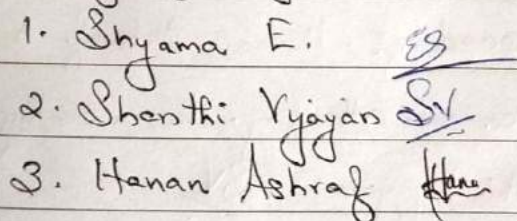 1. Shyama E. ES
2. Shanthi Vijayan SV
3. Hanan Ashraf Hanan